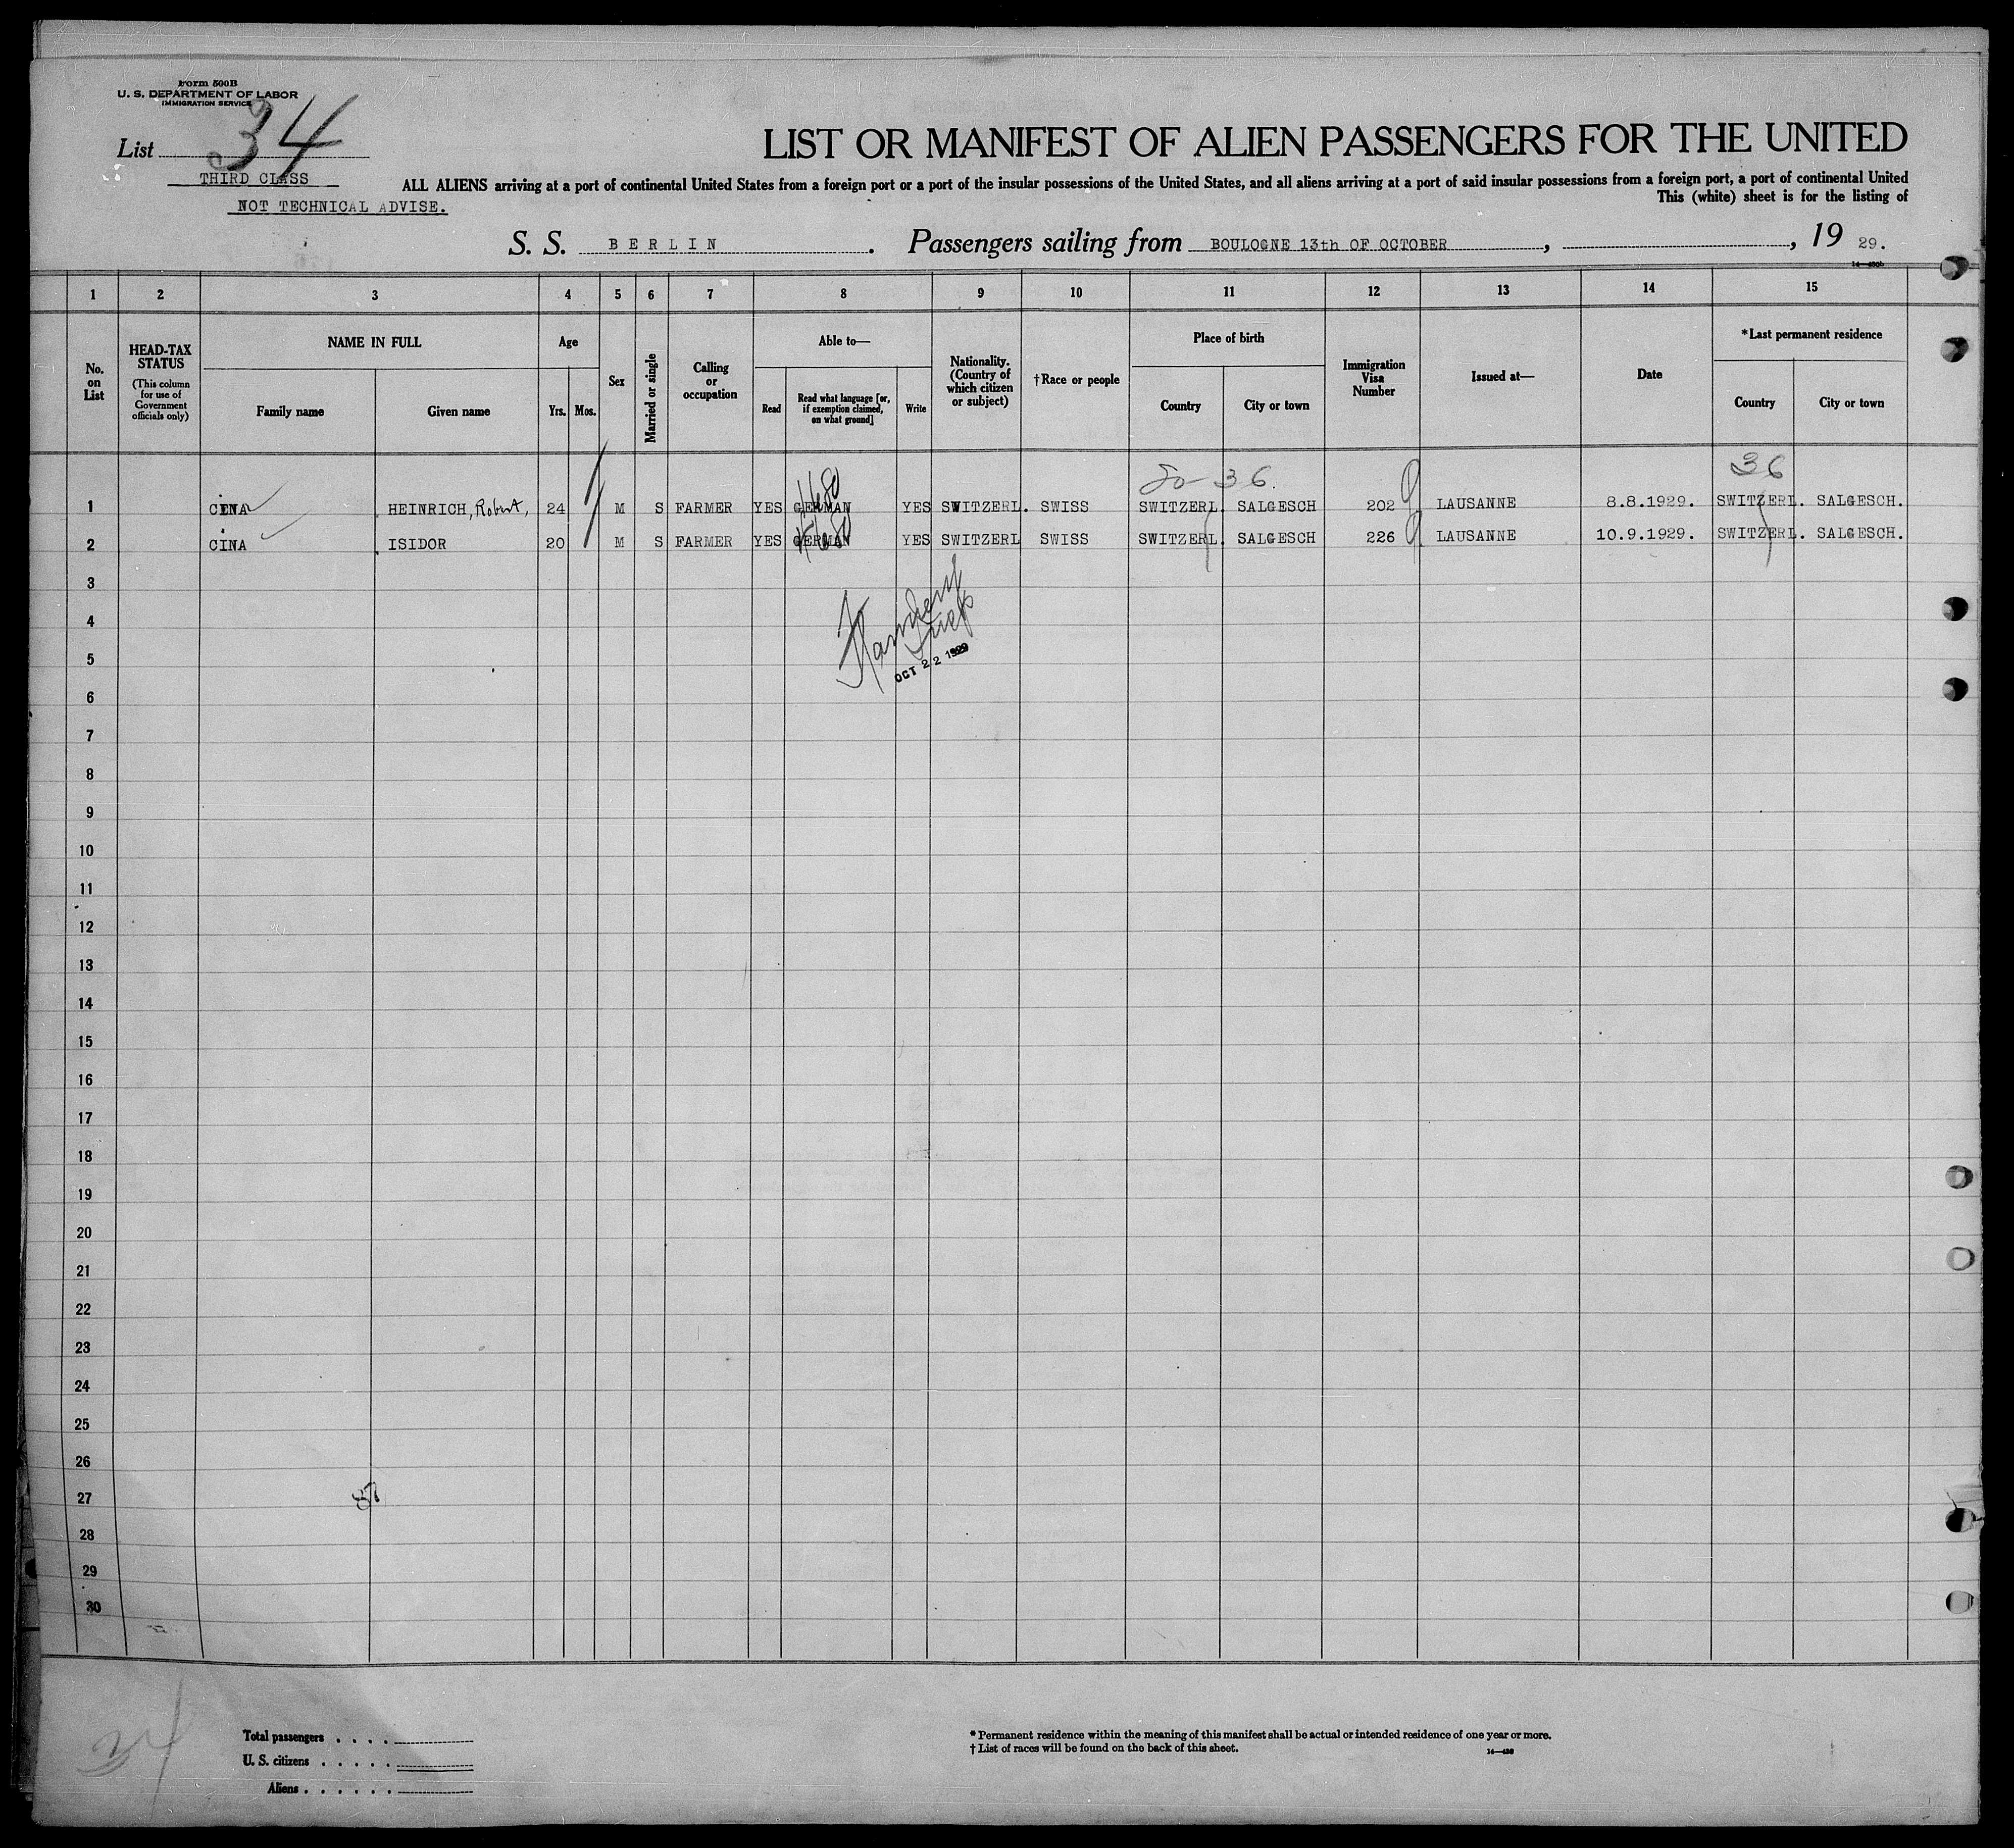 Form 500B
U. S. DEPARTMENT OF LABOR
IMMIGRATION SERVICE
List 34
THIRD CLASS
NOT TECHNICAL ADVISE.
LIST OR MANIFEST OF ALIEN PASSENGERS FOR THE UNITED
ALL ALIENS arriving at a port of continental United States from a foreign port or a port of the insular possessions of the United States, and all aliens arriving at a port of said insular possessions from a foreign port, a port of continental United
This (white) sheet is for the listing of
S. S. BERLIN. Passengers sailing from BOULOGNE 13th OF OCTOBER, , 19 29.
1 2 3 4 5 6 7 8 9 10 11 12 13 14 15
No. on List
HEAD-TAX STATUS
(This column for use of Government officials only)
NAME IN FULL
Family name
Given name
Age
Yrs. Mos.
Sex
Married or single
Calling or occupation
Able to—
Read
Read what language [or, if exemption claimed, on what ground]
Write
Nationality. (Country of which citizen or subject)
† Race or people
Place of birth
Country
City or town
Immigration Visa Number
Issued at—
Date
*Last permanent residence
Country
City or town
36. 36
1 CINA HEINRICH, Robert, 24 M S FARMER YES GERMAN YES SWITZERL. SWISS SWITZERL. SALGESCH 202 LAUSANNE 8.8.1929. SWITZERL. SALGESCH.
2 CINA ISIDOR 20 M S FARMER YES GERMAN YES SWITZERL SWISS SWITZERL. SALGESCH 226 LAUSANNE 10.9.1929. SWITZERL. SALGESCH.
3
4
5
OCT 22 1929
6
7
8
9
10
11
12
13
14
15
16
17
18
19
20
21
22
23
24
25
26
27
28
29
30
34
Total passengers . . . .
U. S. citizens . . . . .
Aliens . . . . . .
* Permanent residence within the meaning of this manifest shall be actual or intended residence of one year or more.
† List of races will be found on the back of this sheet.